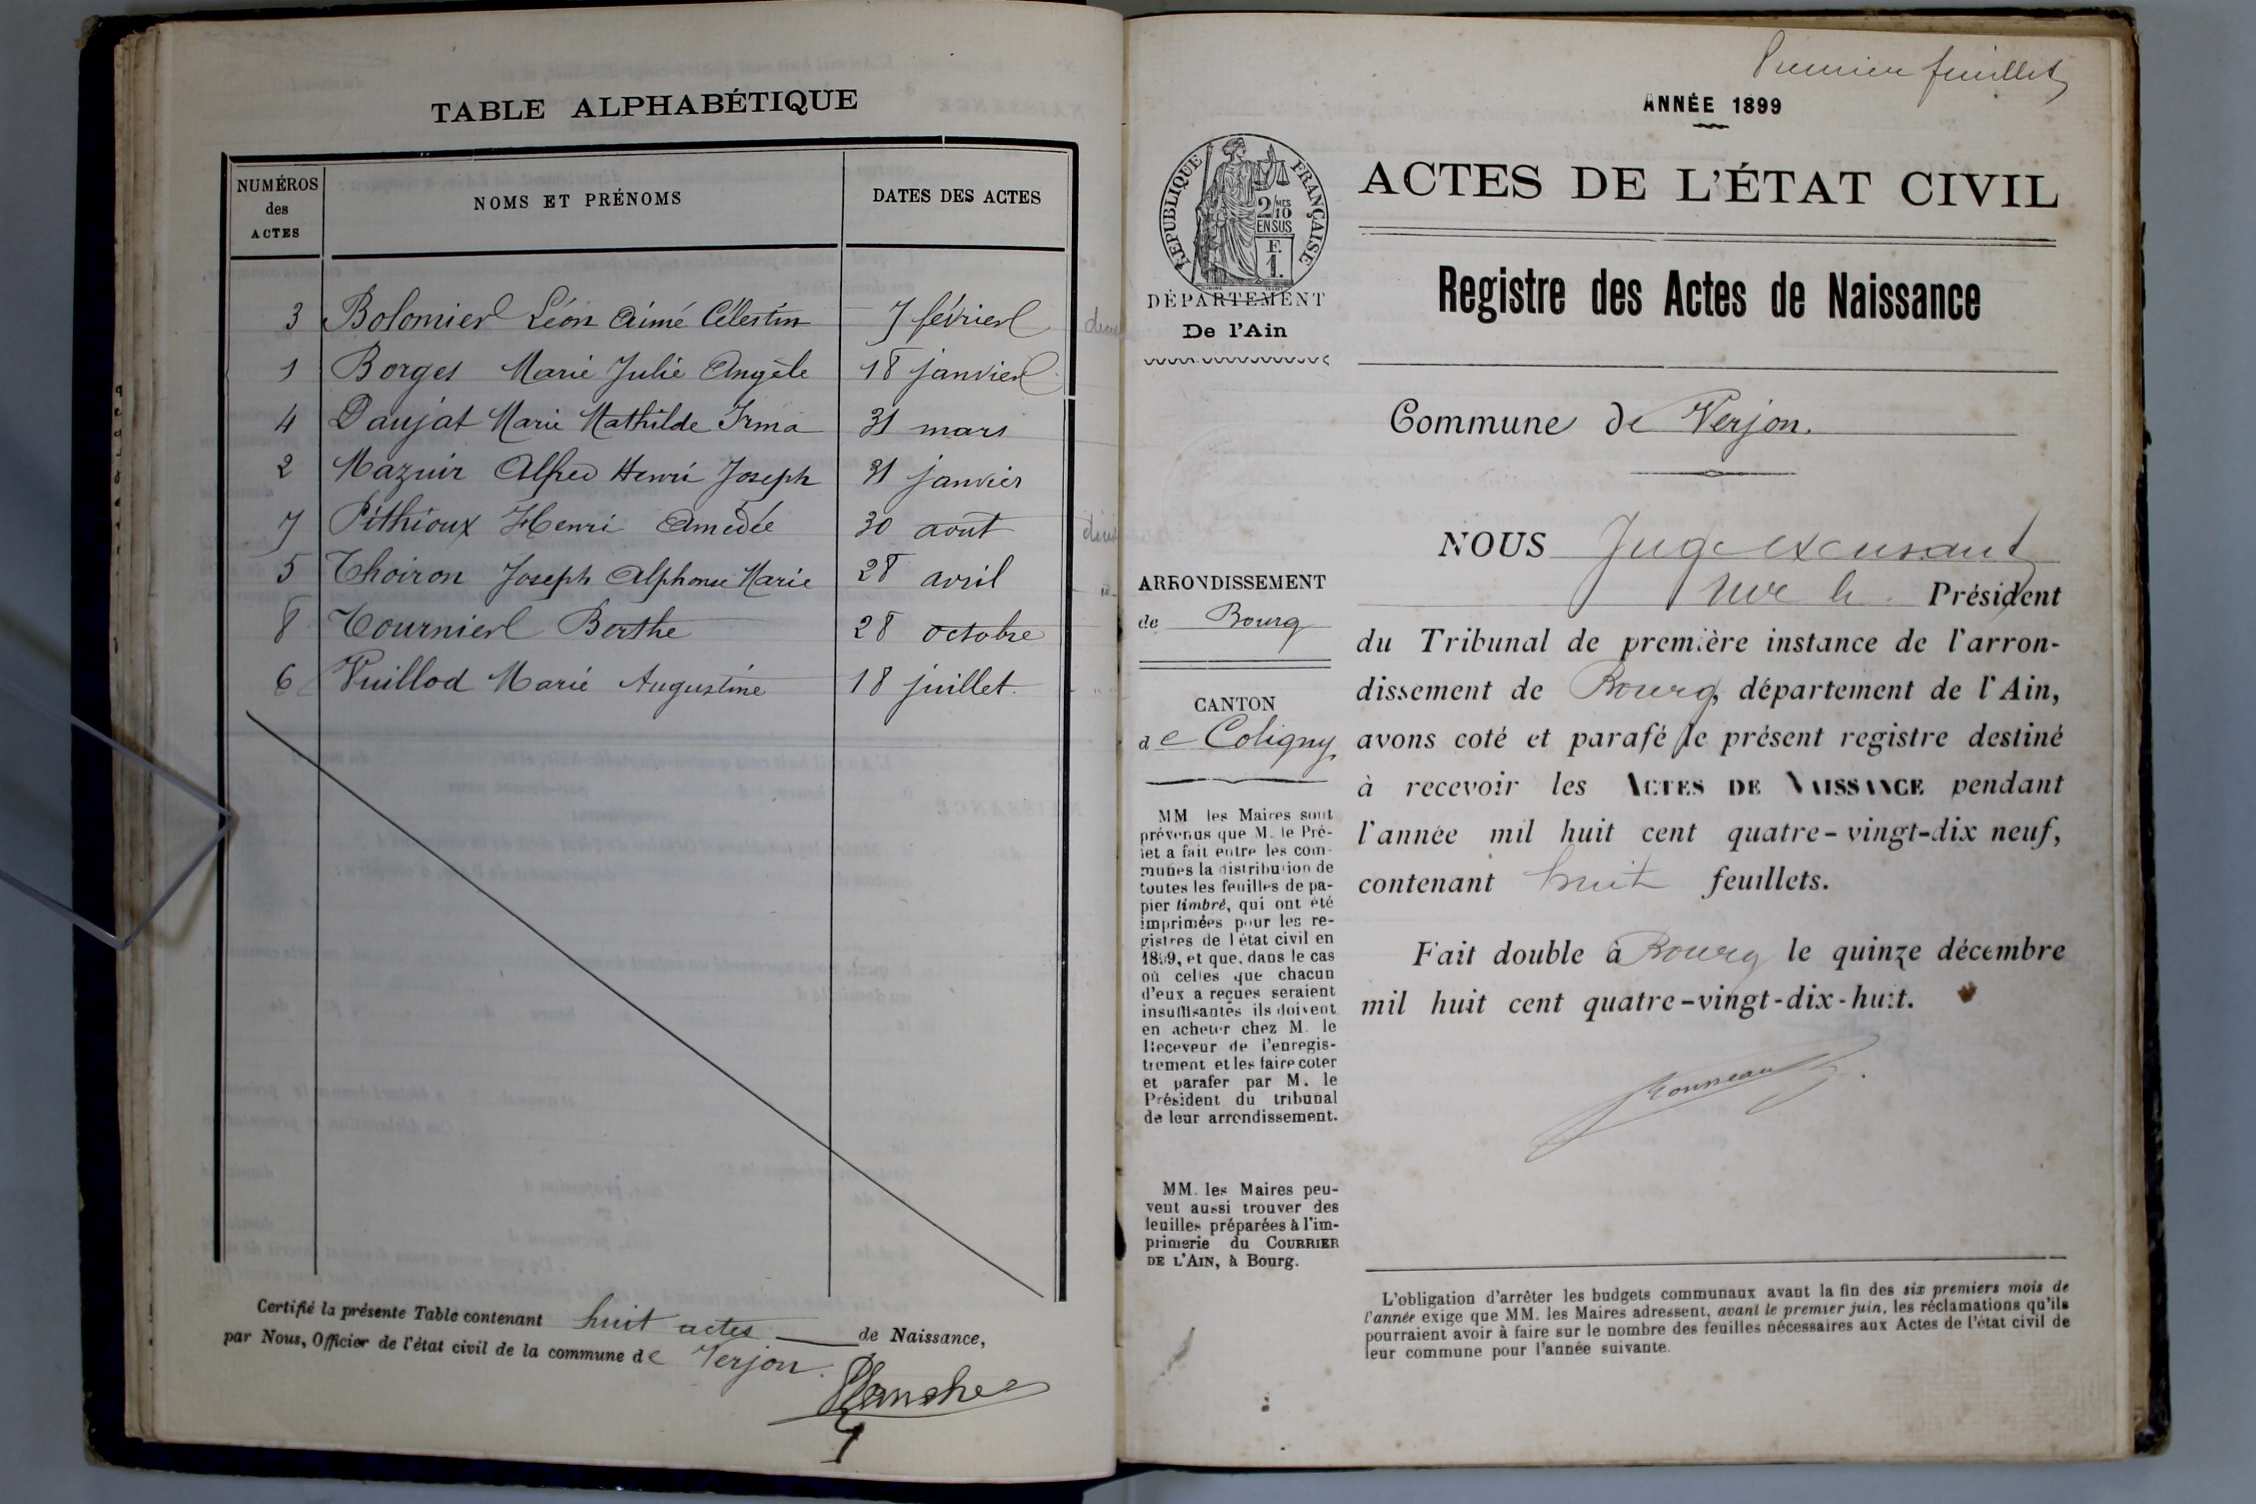 TABLE ALPHABÉTIQUE
NUMÉROS des ACTES NOMS ET PRÉNOMS DATES DES ACTES
3 Bolomier Léon Aimé Célestin 7 février
1 Borges Marie Julie Angèle 18 janvier
4 Daujat Marie Mathilde Irma 31 mars
2 Mazuir Alfred Henri Joseph 31 janvier
7 Pithioux Henri Amédée 30 août
5 Thoiron Joseph Alphonse Marie 28 avril
8 Tournier Berthe 28 octobre
6 Vuillod Marie Augustine 18 juillet
Certifié la présente Table contenant huit actes de Naissance,
par Nous, Officier de l'état civil de la commune de Verjon.
Planche
Premier feuillet
ANNÉE 1899
RÉPUBLIQUE FRANÇAISE
2/10 MES
EN SUS
F.
1.
DÉPARTEMENT
De l'Ain
ARRONDISSEMENT
de Bourg
CANTON
de Coligny
MM. les Maires sont
prévenus que M. le Pré-
fet a fait entre les com-
munes la distribution de
toutes les feuilles de pa-
pier timbré, qui ont été
imprimées pour les re-
gistres de l'état civil en
1899, et que, dans le cas
où celles que chacun
d'eux a reçues seraient
insuffisantes ils doivent
en acheter chez M. le
Receveur de l'enregis-
trement et les faire coter
et parafer par M. le
Président du tribunal
de leur arrondissement.
MM. les Maires peu-
vent aussi trouver des
feuilles préparées à l'im-
primerie du COURRIER
DE L'AIN, à Bourg.
ACTES DE L'ÉTAT CIVIL
Registre des Actes de Naissance
Commune de Verjon.
NOUS Juge
Président
du Tribunal de première instance de l'arron-
dissement de Bourg, département de l'Ain,
avons coté et parafé le présent registre destiné
à recevoir les ACTES DE NAISSANCE pendant
l'année mil huit cent quatre-vingt-dix neuf,
contenant huit feuillets.
Fait double à Bourg le quinze décembre
mil huit cent quatre-vingt-dix-huit.
L'obligation d'arrêter les budgets communaux avant la fin des six premiers mois de
l'année exige que MM. les Maires adressent, avant le premier juin, les réclamations qu'ils
pourraient avoir à faire sur le nombre des feuilles nécessaires aux Actes de l'état civil de
leur commune pour l'année suivante.